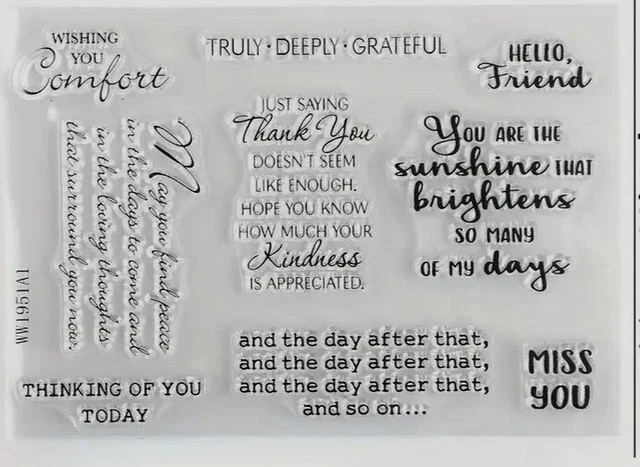 WISHING
YOU
Comfort
TRULY · DEEPLY · GRATEFUL
HELLO,
Friend
May you find peace
in the days to come and
in the loving thoughts
that surround you now.
JUST SAYING
Thank You
DOESN'T SEEM
LIKE ENOUGH.
HOPE YOU KNOW
HOW MUCH YOUR
Kindness
IS APPRECIATED.
YOU ARE THE
sunshine THAT
brightens
SO MANY
OF MY days
THINKING OF YOU
TODAY
and the day after that,
and the day after that,
and the day after that,
and so on...
MISS
YOU